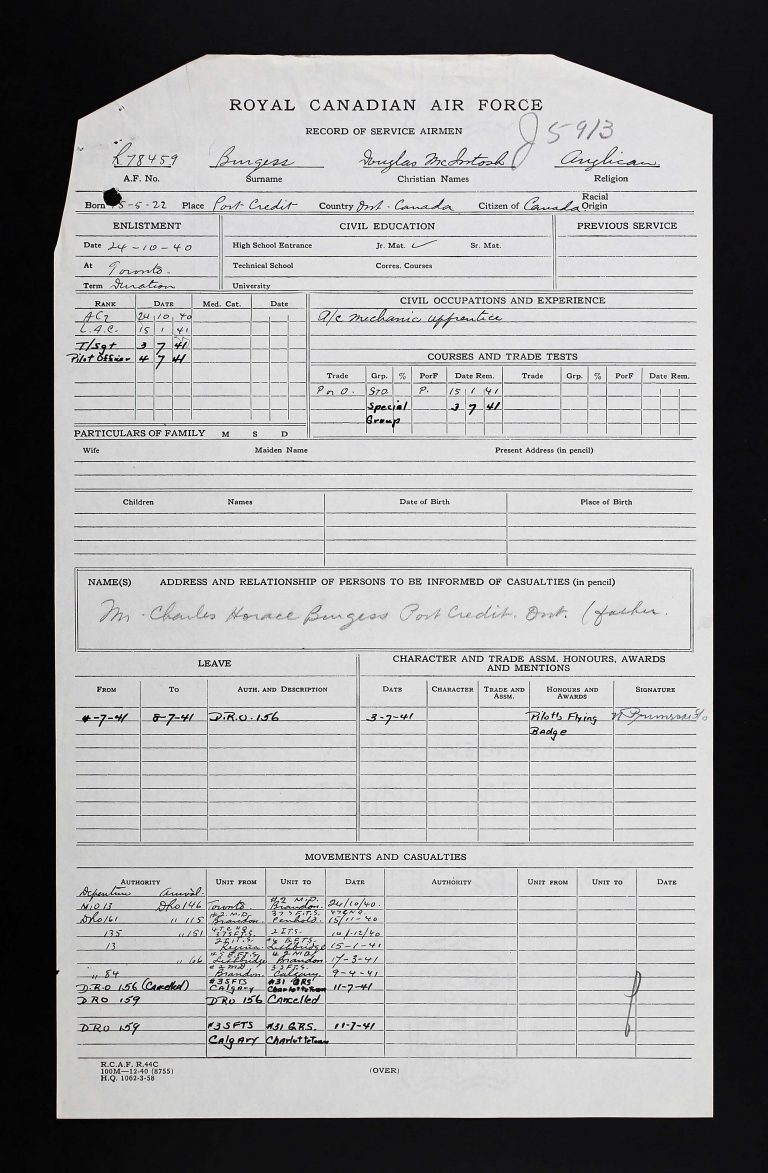 ROYAL CANADIAN AIR FORCE
RECORD OF SERVICE AIRMEN
J5913
R78459 Burgess Douglas McIntosh Anglican
A.F. No. Surname Christian Names Religion
Born 5-5-22 Place Port Credit Country Ont. Canada Citizen of Canada Racial Origin
ENLISTMENT CIVIL EDUCATION PREVIOUS SERVICE
Date 24-10-40 High School Entrance Jr. Mat. ✓ Sr. Mat.
At Toronto. Technical School Corres. Courses
Term Duration University
RANK DATE Med. Cat. Date CIVIL OCCUPATIONS AND EXPERIENCE
AC2 24 10 40 a/c mechanic apprentice
L.A.C. 15 1 41
T/Sgt 3 7 41
Pilot Officer 4 7 41 COURSES AND TRADE TESTS
Trade Grp. % PorF Date Rem. Trade Grp. % PorF Date Rem.
P n O. STD P. 15 1 41
Special 3 7 41
Group
PARTICULARS OF FAMILY M S D
Wife Maiden Name Present Address (in pencil)
Children Names Date of Birth Place of Birth
NAME(S) ADDRESS AND RELATIONSHIP OF PERSONS TO BE INFORMED OF CASUALTIES (in pencil)
Mr. Charles Horace Burgess Port Credit. Ont. (father.
LEAVE CHARACTER AND TRADE ASSM. HONOURS, AWARDS
AND MENTIONS
FROM TO AUTH. AND DESCRIPTION DATE CHARACTER TRADE AND ASSM. HONOURS AND AWARDS SIGNATURE
4-7-41 8-7-41 D.R.O. 156 3-7-41 Pilot's Flying
Badge
MOVEMENTS AND CASUALTIES
AUTHORITY UNIT FROM UNIT TO DATE AUTHORITY UNIT FROM UNIT TO DATE
Departure Arrival.
N.O 13 Dro 146 Toronto #2 M.D. Brandon. 24/10/40.
Dro 161 " 115 #2 M.D. Brandon Penhold. 15/11-40
135 " 151 2 I.T.S. 10/12/40
13 2 I.T.S. Regina Lethbridge 15-1-41
" 66 Lethbridge #2 M.D. Brandon 17-3-41
" 84 #2 M.D. Brandon. 3 S.F.T.S. Calgary. 9-4-41
D.R.O 156 (Cancelled) #3SFTS Calgary #31 GRS Charlottetown 11-7-41
D R O 159 DRO 156 Cancelled
DRO 159 #3SFTS #31 G.R.S. 11-7-41
Calgary Charlottetown
R.C.A.F. R.44C
100M—12-40 (8755)
H.Q. 1062-3-58
(OVER)